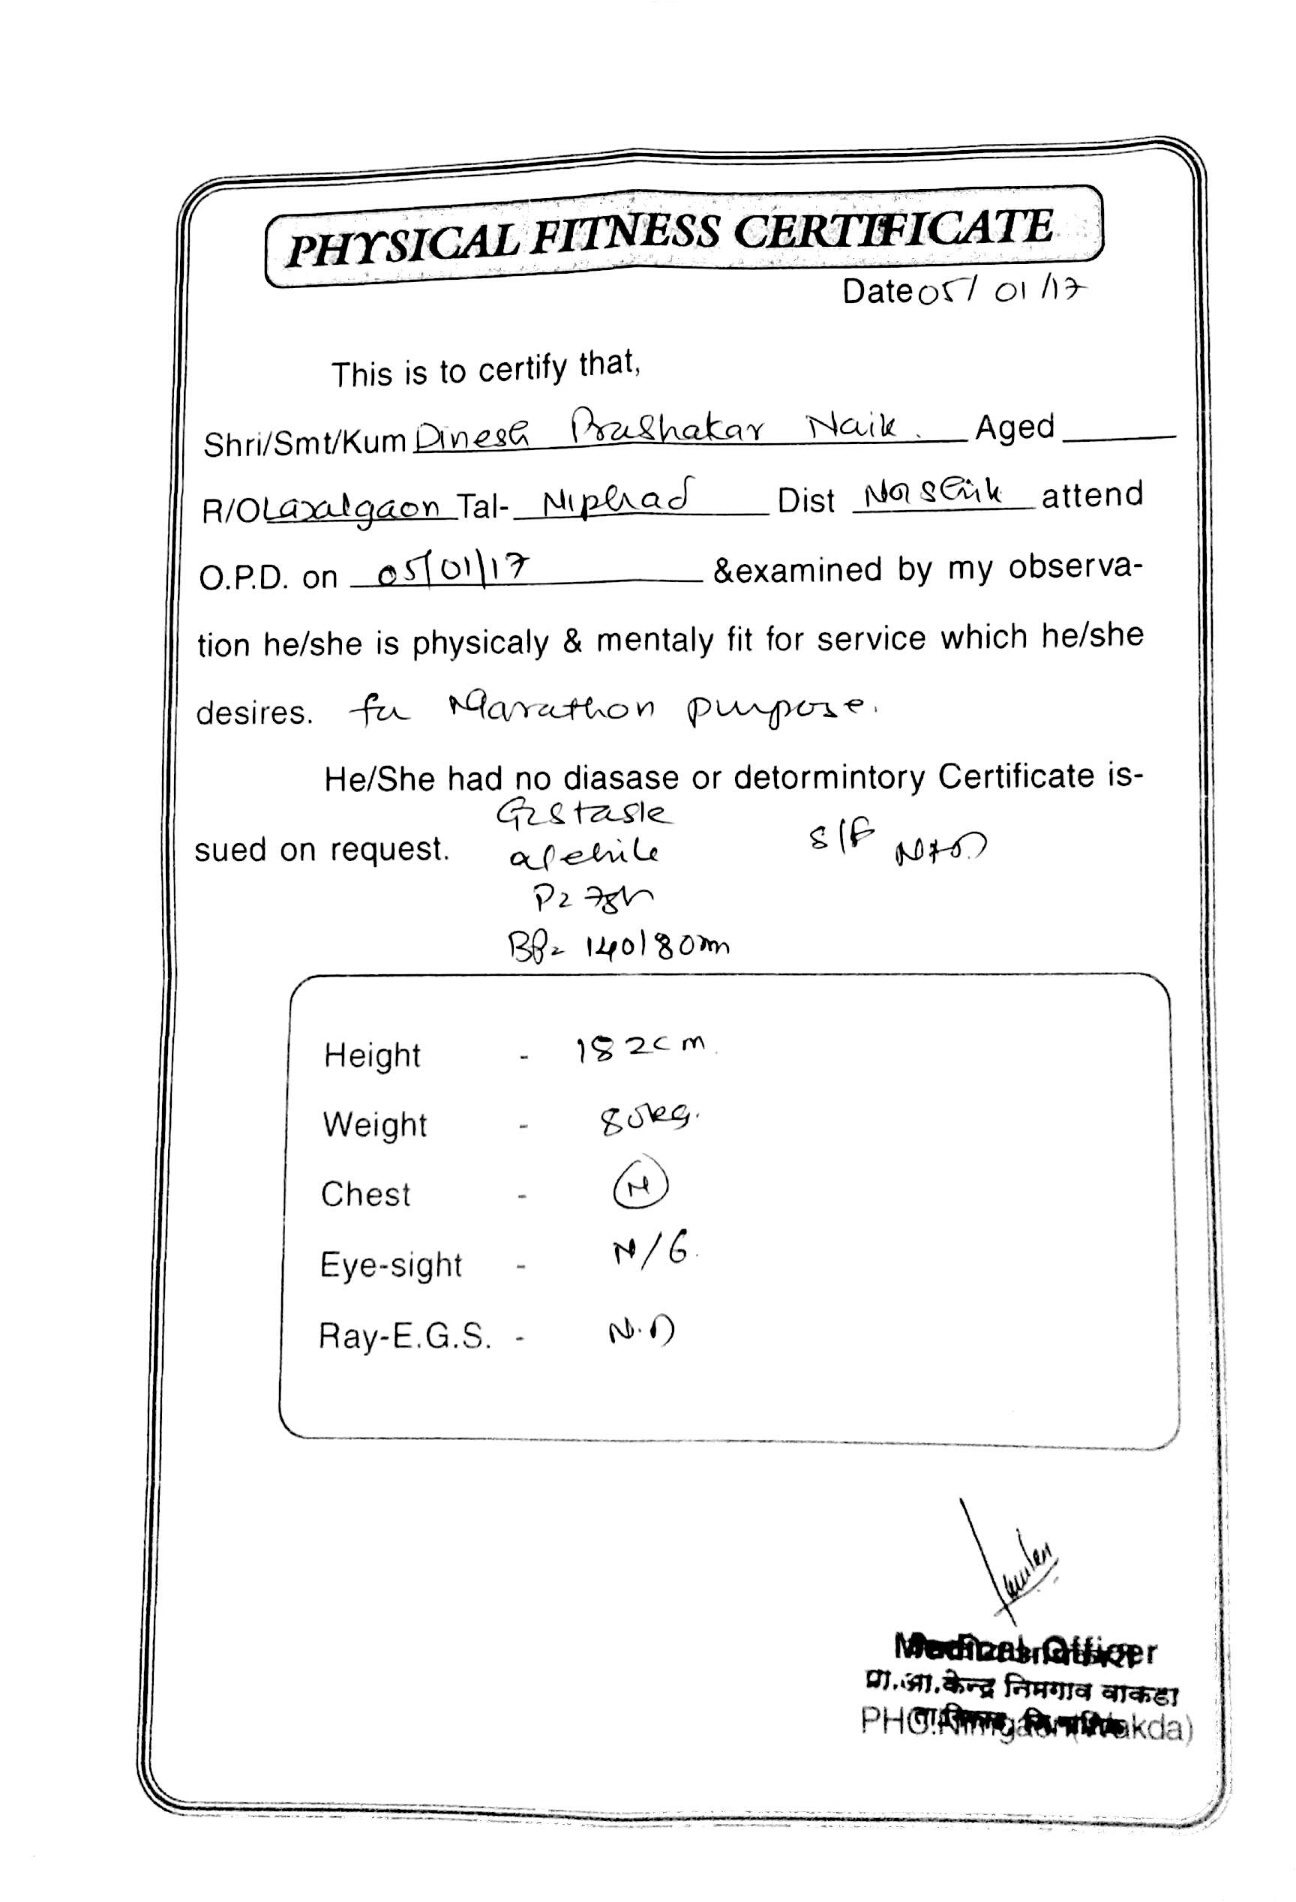 PHYSICAL FITNESS CERTIFICATE
Date 05/01/17
This is to certify that,
Shri/Smt/Kum Dinesh Prabhakar Naik. Aged
R/O Lasalgaon Tal- Niphad Dist Nashik attend
O.P.D. on 05/01/17 &examined by my observa-
tion he/she is physicaly & mentaly fit for service which he/she
desires. for Marathon purpose.
He/She had no diasase or detormintory Certificate is-
sued on request.
S/E NAD
afebrile
P= 78/
BP= 140/80m
Height - 182cm.
Weight - 80kg.
Chest - N
Eye-sight - N/6.
Ray-E.G.S. - N.D
Medical Officer
प्रा.आ.केन्द्र निमगाव वाकडा
PHC.Nimgaon(Wakda)